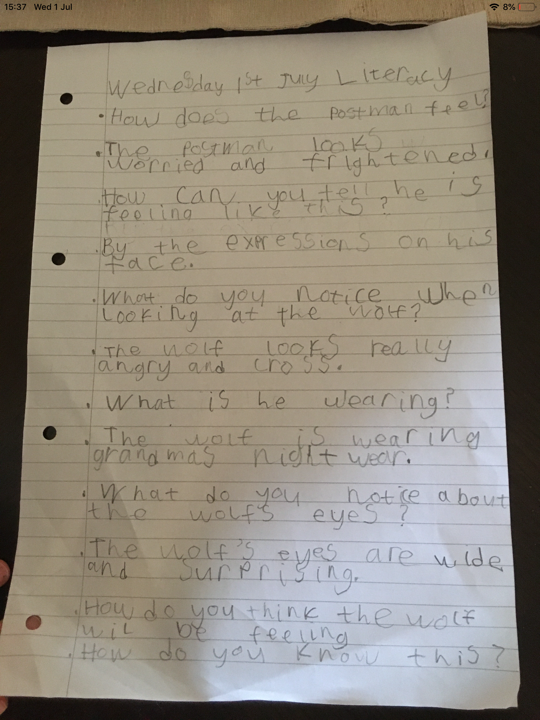 15:37 Wed 1 Jul 8%
Wednesday 1st July Literacy
• How does the postman feel?
• The postman looks
worried and frightened.
• How can you tell he is
feeling like this?
• By the expressions on his
face.
• What do you notice when
looking at the wolf?
• The wolf looks really
angry and cross.
• What is he wearing?
• The wolf is wearing
grandmas nightwear.
• What do you notice about
the wolf's eyes?
• The wolf's eyes are wide
and surprising.
• How do you think the wolf
wil be feeling
• How do you know this?